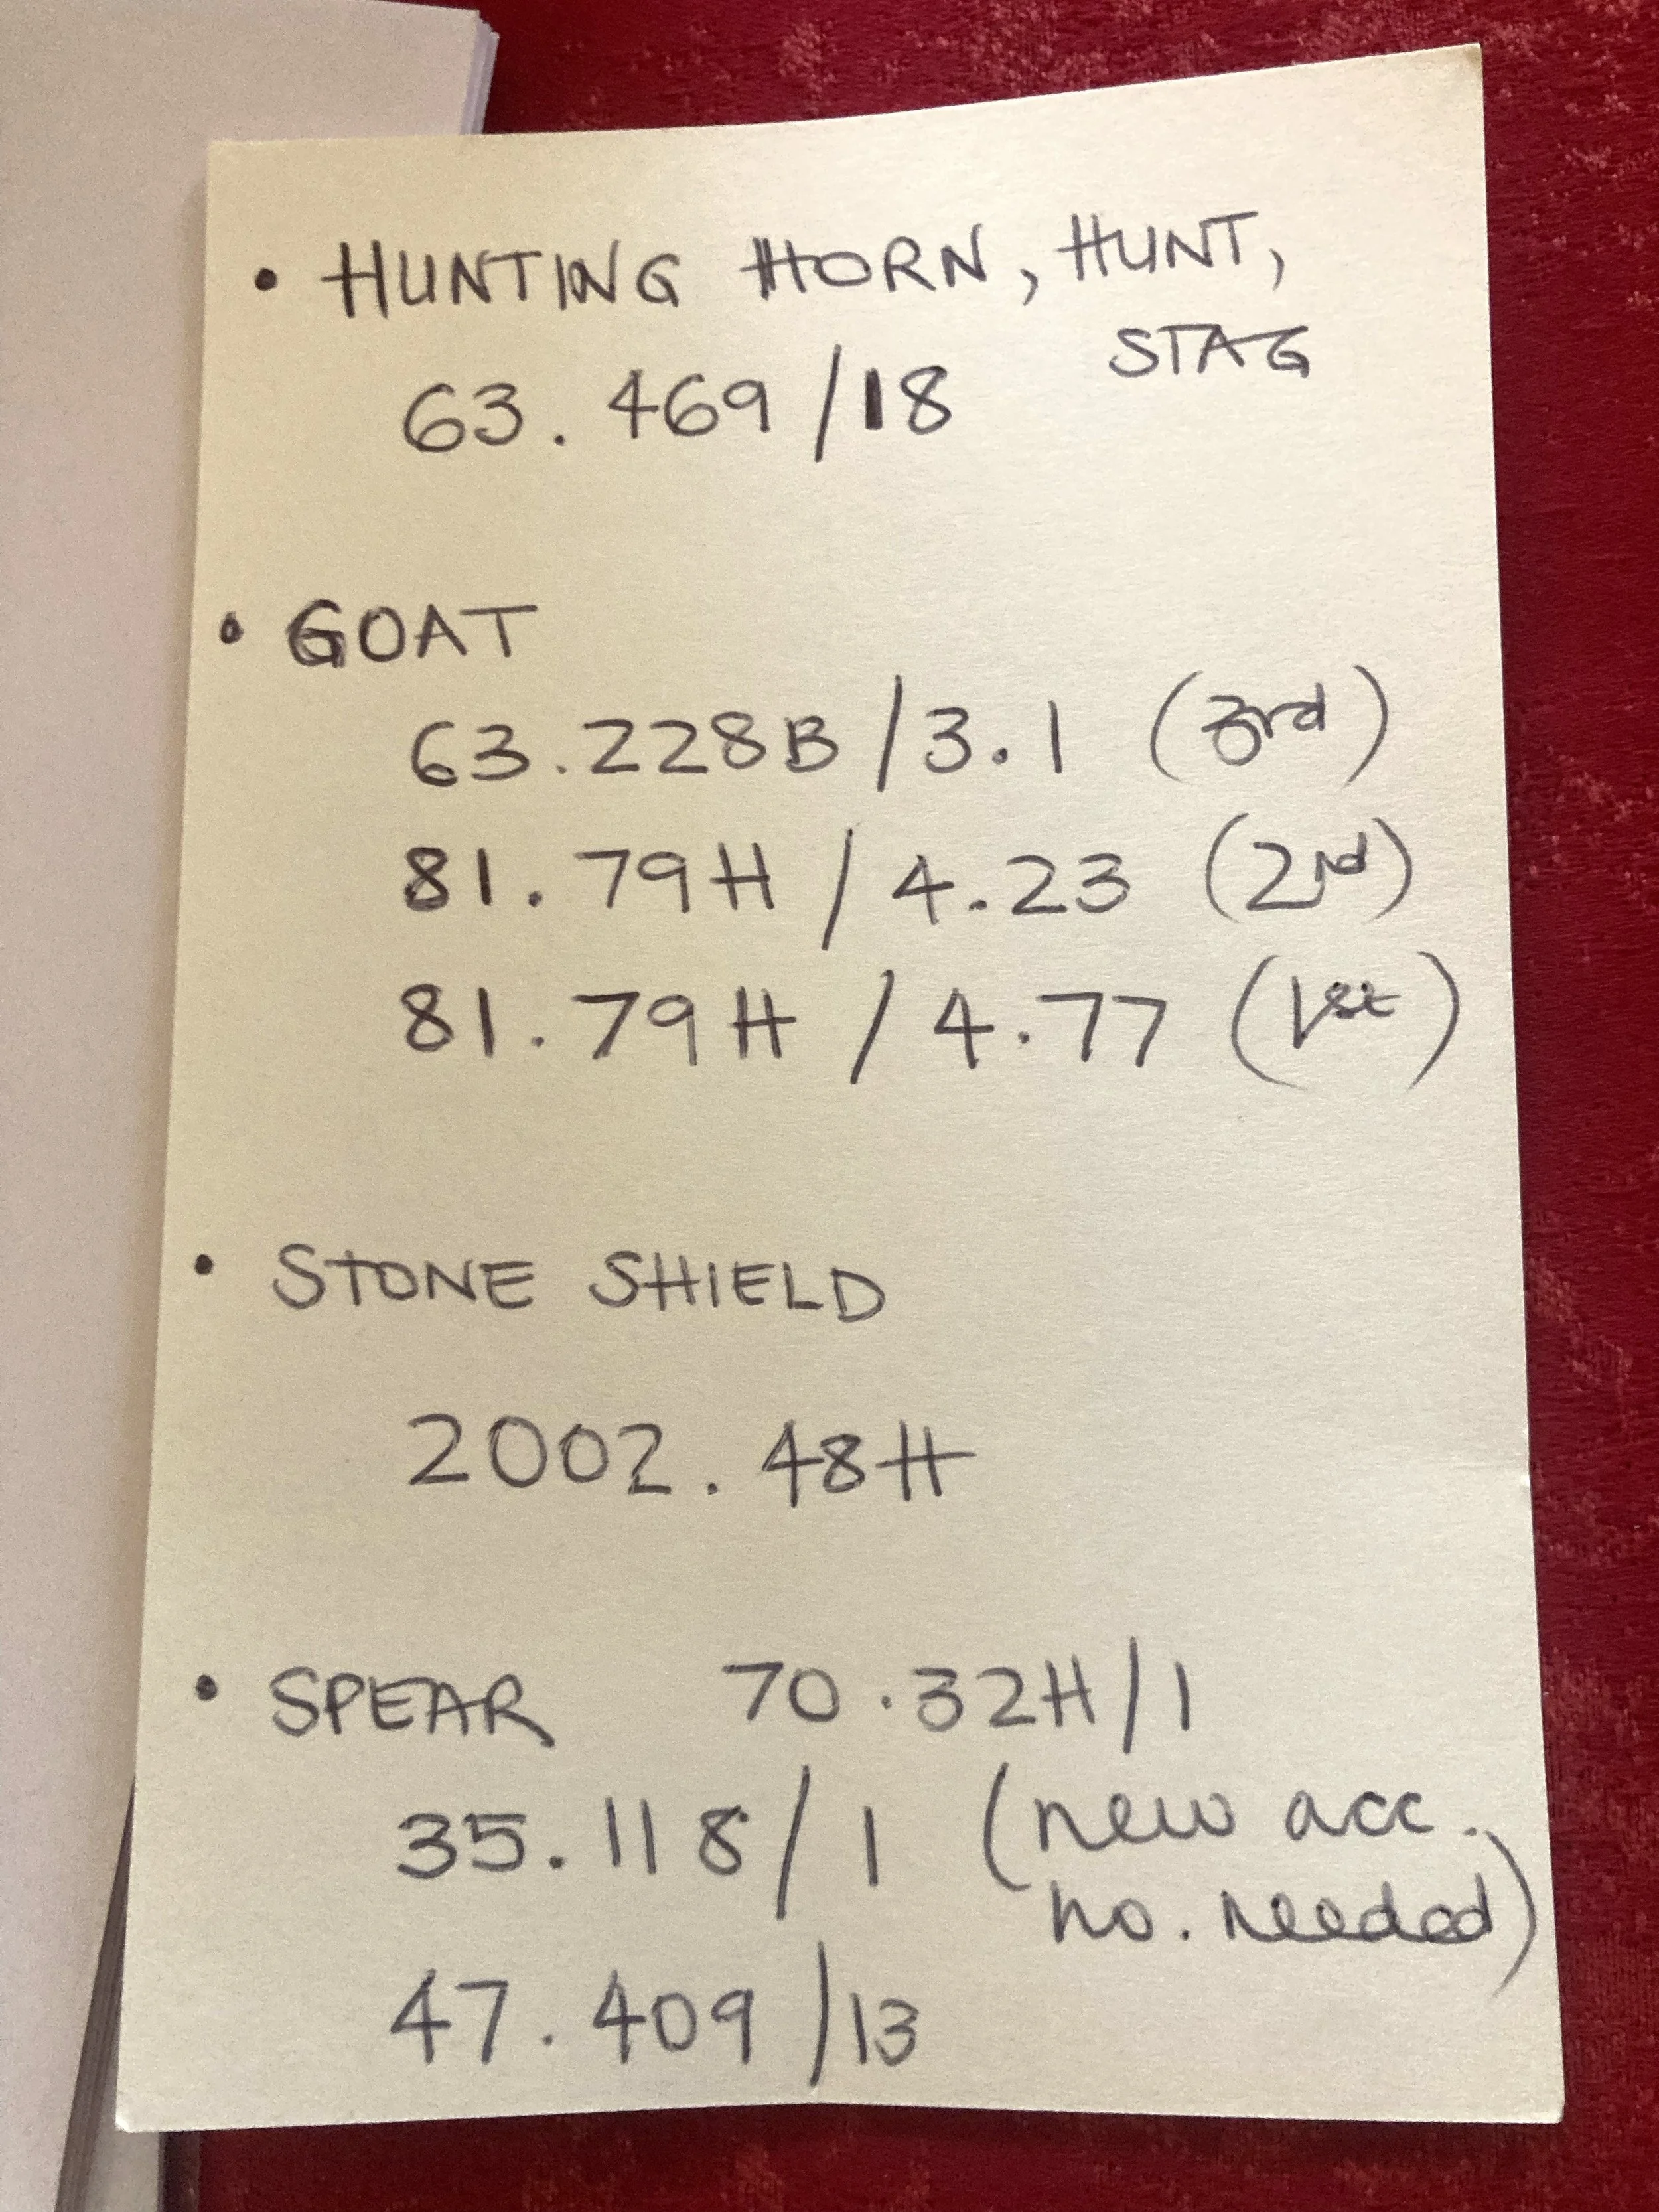 • HUNTING HORN, HUNT,
STAG
63.469/18
• GOAT
63.228B/3.1 (3rd)
81.79H/4.23 (2nd)
81.79H/4.77 (1st)
• STONE SHIELD
2002.48H
• SPEAR 70.32H/1
35.118/1 (new acc.
no. needed)
47.409/13